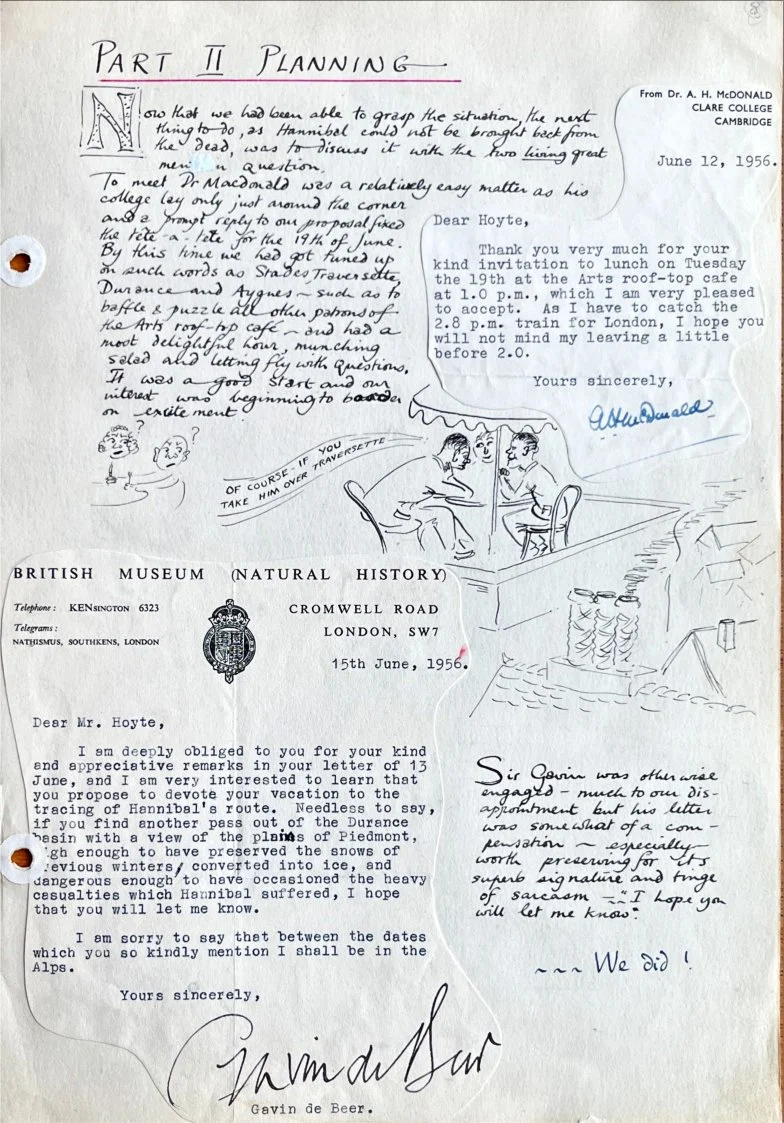 PART II PLANNING
Now that we had been able to grasp the situation, the next
thing to do, as Hannibal could not be brought back from
the dead, was to discuss it with the two living great
men in question.
To meet Dr Macdonald was a relatively easy matter as his
college lay only just around the corner
and a prompt reply to our proposal fixed
the tête-a-tête for the 19th of June.
By this time we had got tuned up
on such words as Stades, Traversette,
Durance and Aygues – such as to
baffle & puzzle all other patrons of
the Arts roof-top café – and had a
most delightful hour, munching
salad and letting fly with questions.
It was a good start and our
interest was beginning to border
on excitement.
From Dr. A. H. McDONALD
CLARE COLLEGE
CAMBRIDGE
June 12, 1956.
Dear Hoyte,
Thank you very much for your
kind invitation to lunch on Tuesday
the 19th at the Arts roof-top cafe
at 1.0 p.m., which I am very pleased
to accept. As I have to catch the
2.8 p.m. train for London, I hope you
will not mind my leaving a little
before 2.0.
Yours sincerely,
AHMcDonald
? ?
OF COURSE – IF YOU
TAKE HIM OVER TRAVERSETTE –
BRITISH MUSEUM (NATURAL HISTORY)
Telephone: KENSINGTON 6323
Telegrams:
NATHISMUS, SOUTHKENS, LONDON
CROMWELL ROAD
LONDON, SW7
15th June, 1956.
Dear Mr. Hoyte,
I am deeply obliged to you for your kind
and appreciative remarks in your letter of 13
June, and I am very interested to learn that
you propose to devote your vacation to the
tracing of Hannibal's route. Needless to say,
if you find another pass out of the Durance
basin with a view of the plains of Piedmont,
igh enough to have preserved the snows of
revious winters, converted into ice, and
dangerous enough to have occasioned the heavy
casualties which Hannibal suffered, I hope
that you will let me know.
I am sorry to say that between the dates
which you so kindly mention I shall be in the
Alps.
Yours sincerely,
Gavin de Beer
Gavin de Beer.
Sir Gavin was otherwise
engaged – much to our dis-
appointment but his letter
was somewhat of a com-
pensation – especially
worth preserving for its
superb signature and tinge
of sarcasm – "I hope you
will let me know".
~~~ We did !